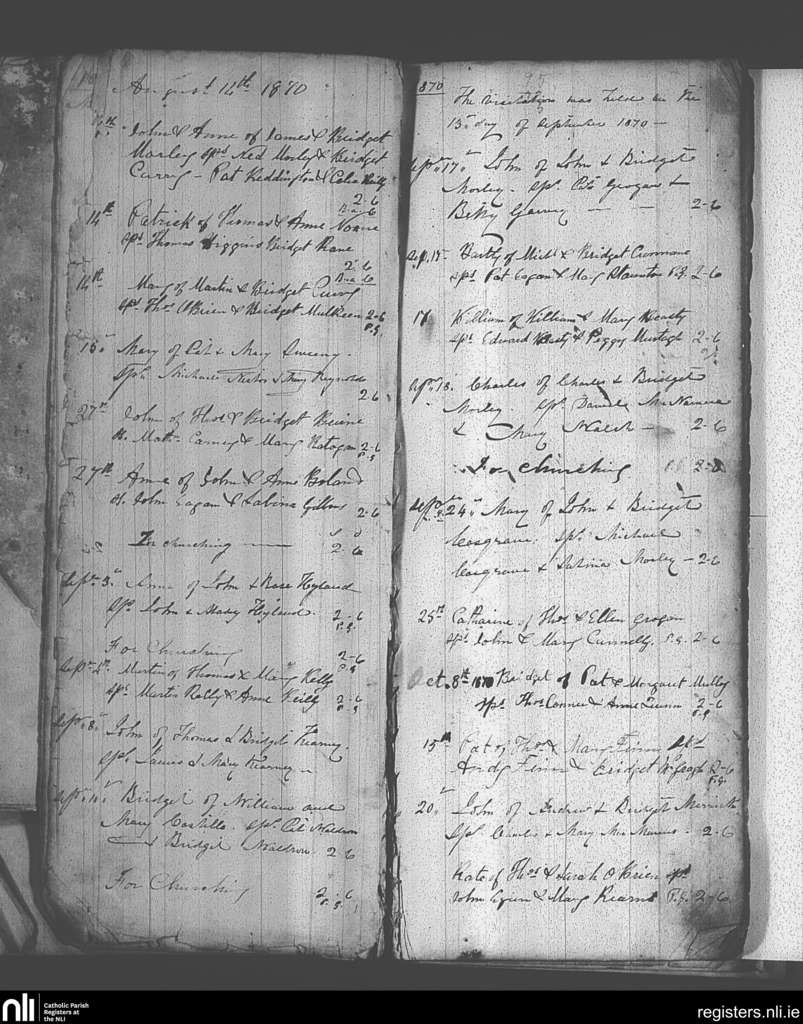 August 14th 1870
John & Anne of James & Bridget
Morley sps Ned Morley & Bridget
Curry - Pat Reddington & Celia Reilly
2-6
14th Patrick of Thomas & Anne Noone
2-6
sps Thomas Higgins Bridget Kane
2-6
14th Mary of Martin & Bridget Curry
sps Thos OBrien & Bridget Mulkeen 2-6
P.S.
15 Mary of Pat & Mary Sweeny.
sps Michael & Mary Reynolds
2 6
27th John of Thos & Bridget Beirne
Matt Carney & Mary 2-6
P.S.
27th Anne of John & Anne Boland
John Eagan & Sabina 2-6
For churching 2-6
Sept 3 Anne of John & Rose Hyland
sps John & Mary Hyland. 2-6
P.S.
For Churching 2-6
P.S
Sept Martin of Thomas & Mary Kelly
sps Martin Kelly & Anne Reilly 2-6
P-S
Sept 8 John of Thomas & Bridget Kearney.
sps James & Mary Kearney
Sept 11 Bridget of William and
Mary Costillo. sps Pat Waldron
& Bridget Waldron. 2 6
For Churching 2-6
P.S.
870
95
The visitation was held on the
13 day of September 1870 -
Sept 17 John of John & Bridget
Morley. sps Pat Grogan &
Betsy Garvey - 2-6
Sep. Batty of Michl & Bridget Cunnane
sps Pat Eagan & Mary Staunton P.S. 2-6
17 William of William & Mary
sps Edward & Peggy 2-6
18. Charles of Charles & Bridget
Morley. sps Daniel McNamara
& Mary Walsh - 2-6
For churching 2-6
Sept 24 Mary of John & Bridget
Cosgrave. sps Michael
Cosgrave & Sabina Morley - 2-6
25th Catharine of Thos & Ellen Grogan
sps John & Mary Cunnelly. P.S. 2-6
Oct. 8th 1870 Bridget of Pat & Margaret Mulley
sps Thos Connor & Anne Quinn 2-6
P.S
15th Pat of Thos & Mary Finn sps
Andy Finn & Bridget 2-6
P.S.
20 John of Andrew & Bridget Merrick
sps Charles & Mary - 2-6
Kate of Thos & Sarah O Brien sps
John Egan & Mary Kearns P.S. 2-6
nli
Catholic Parish
Registers at
the NLI
registers.nli.ie